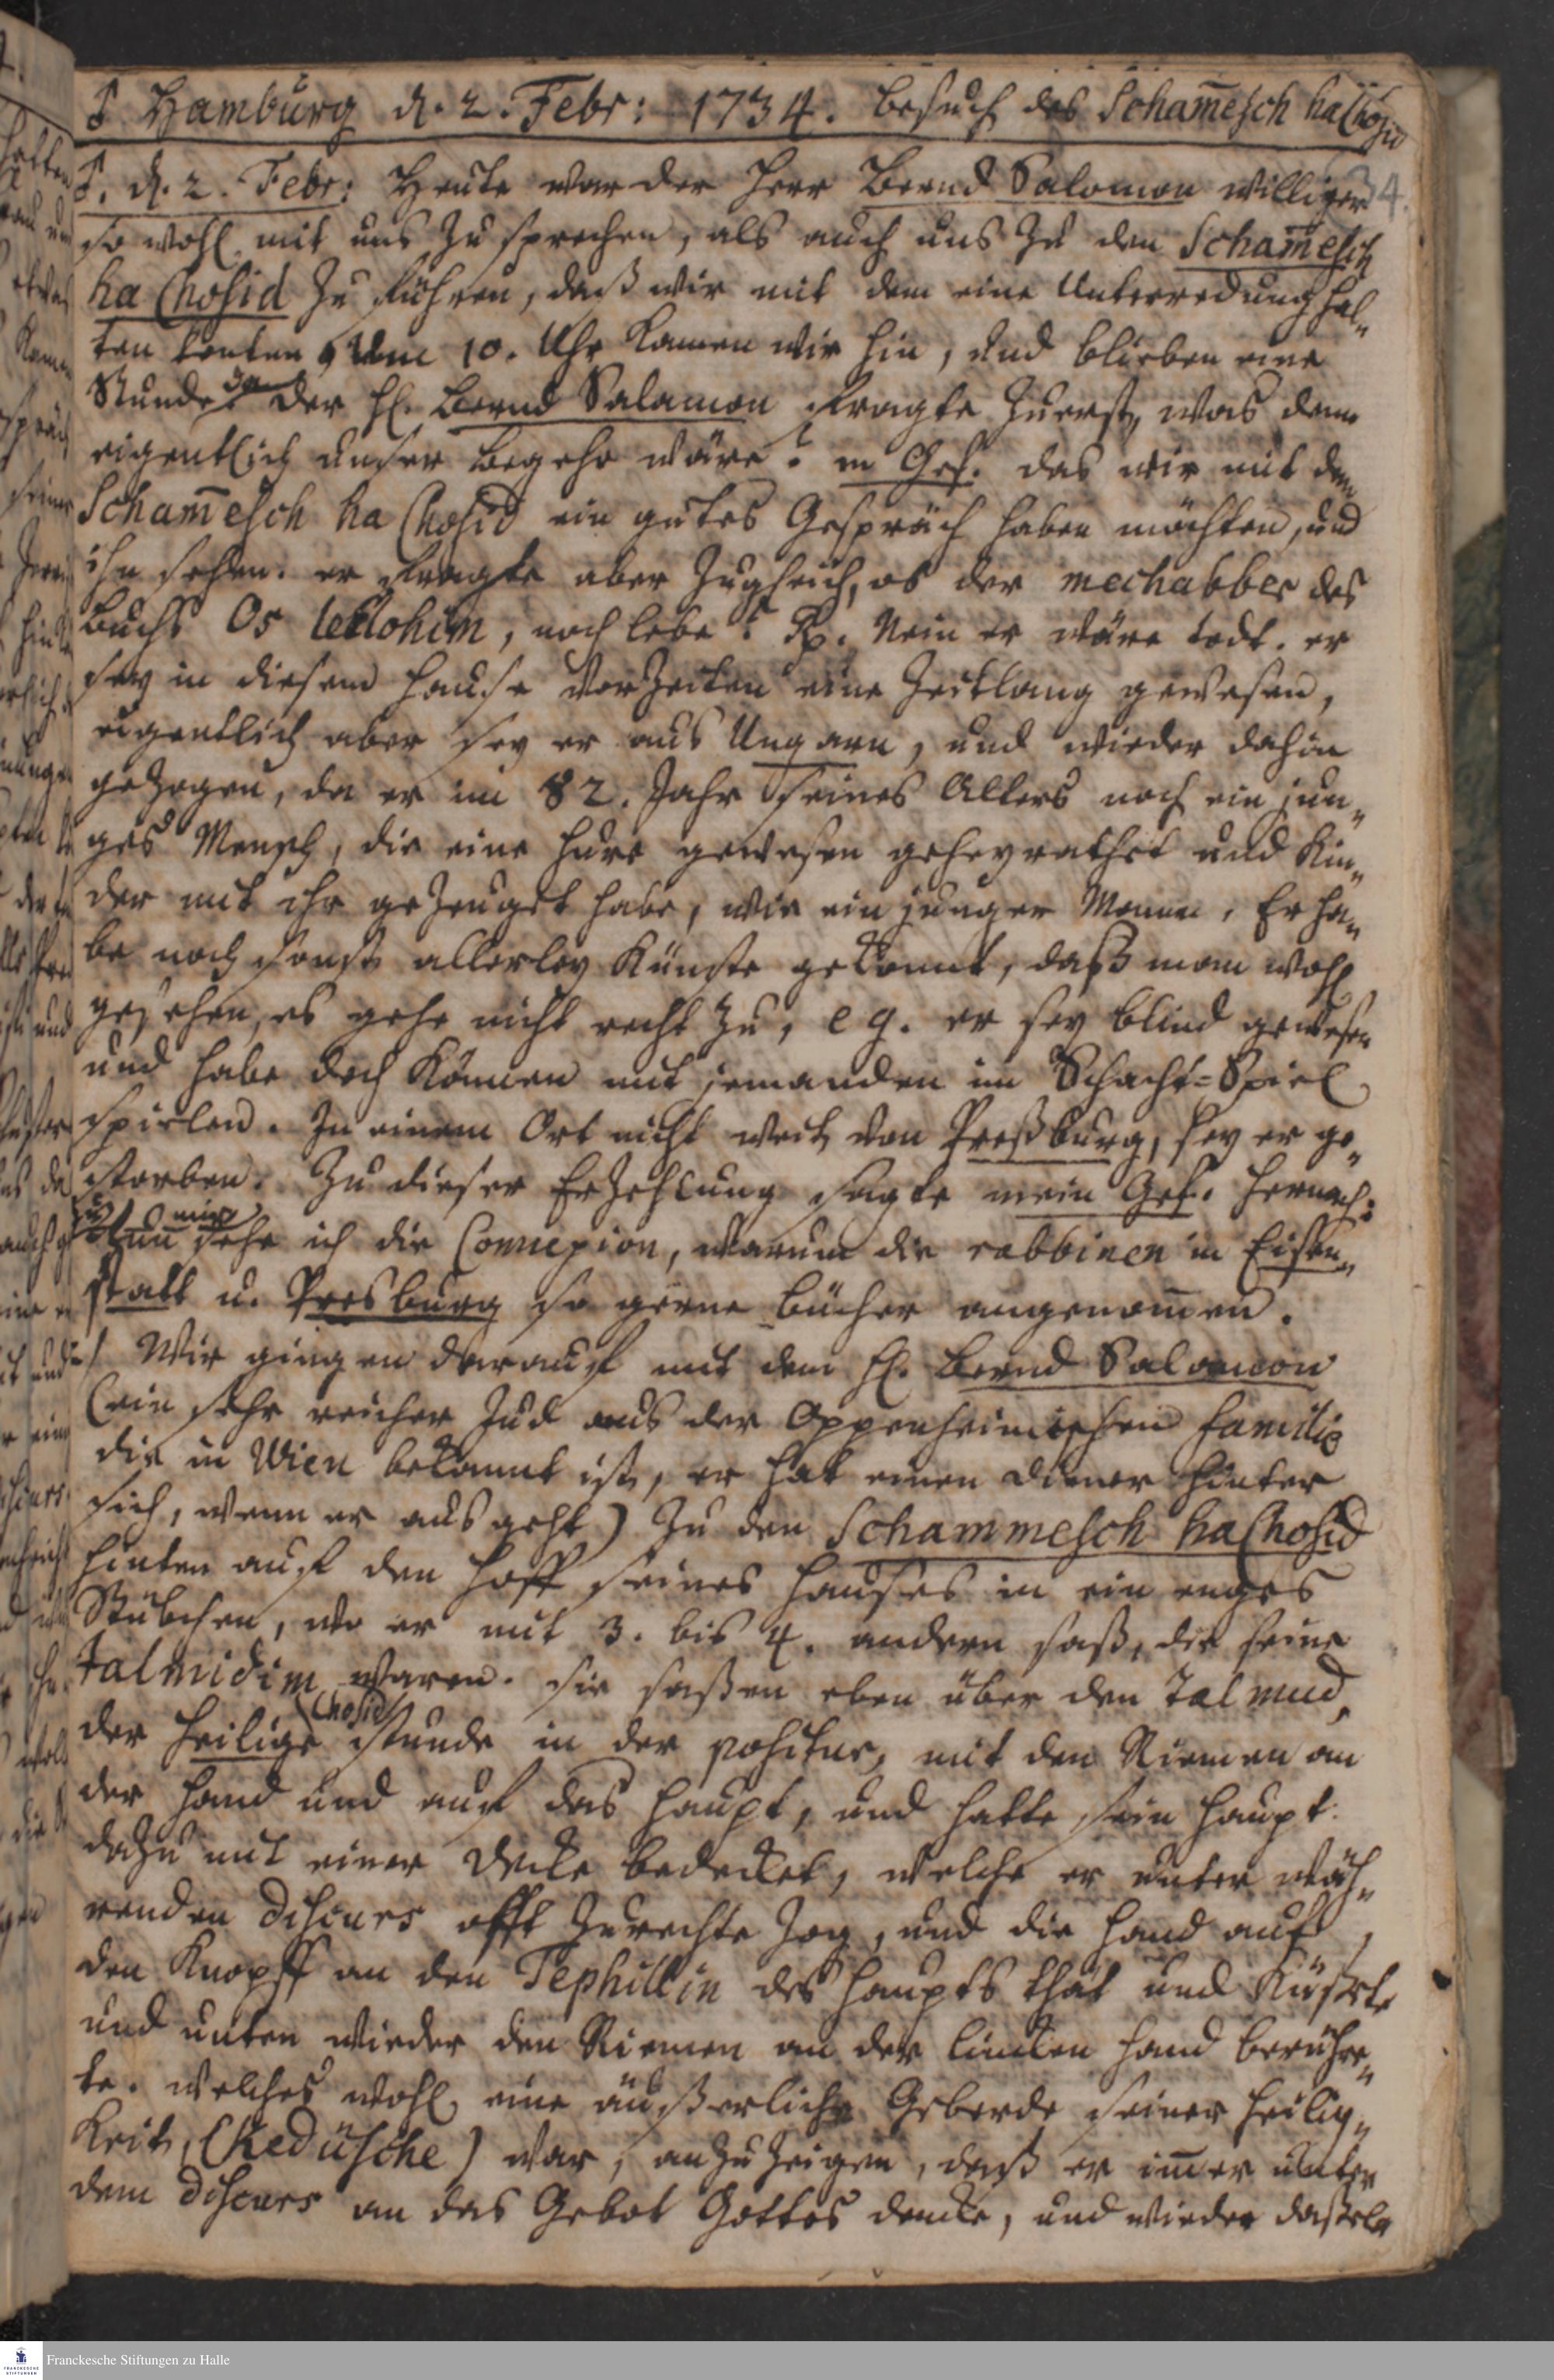 ♂ Hamburg d. 2. Febr: 1734. Besuch des Scham̄esch ha Chosid
34.
♂. d. 2. Febr: Heute war der Herr Bernd Salomon williger
so wohl mit uns zu sprechen, als auch uns zu den Scham̄esch
ha Chosid zu führen, daß wir mit dem eine Unterredung hal„
ten konten, Um 10. Uhr kamen wir hin, und blieben eine
Stunde da der H. Bernd Salamon fragte zuerst, was denn
eigentlich unser Begehr wäre? m Gef. das wir mit dem
Scham̄esch ha Chosid ein gutes Gespräch haben möchten, und
ihn sehen. er fragte aber zugleich, ob der mechabber des
Buchs Os leElohim, noch lebe? Rp. Nein er wäre todt. er
sey in diesem Hause vor Zeiten eine Zeitlang gewesen,
eigentlich aber sey er aus Ungarn, und wieder dahin
gezogen, da er im 82. Jahr seines Alters noch ein jun„
ges Mensch, die eine Hure gewesen geheyrathet und Kin„
der mit ihr gezeuget habe, wie ein junger Mann, Er ha„
be noch sonst allerley Künste gekonnt, daß man wohl
gesehen, es gehe nicht recht zu, e g. er sey blind gewesen
und habe doch können mit jemanden im Schacht-Spiel
spielen. In einem Ort nicht weit von Preßburg, sey er ge„
storben. Zu dieser Erzehlung sagte mein Gef. hernach:
zu mir
Nun sehe ich die Connexion, warum die rabbinen in Eisen„
statt u. Presburg so gerne Bücher angenom̄en.
Wir gingen darauf mit dem H. Bernd Salomon
(ein sehr reicher Jud aus der Oppenheimischen familie
die in Wien bekannt ist, er hat einen diener hinter
sich, wenn er ausgeht) zu den Schammesch ha Chosid
hinten auf den Hoff seines Hauses in ein enges
Stübchen, wo er mit 3. bis 4. andern saß, die seine
talmidim waren. sie saßen eben über den Talmud,
(Chosid)
der heilige stunde in der positur, mit den Riemen an
der Hand und auf das Haupt, und hatte sein Haupt
dazu mit einer Decke bedecket, welche er unter wäh„
renden discurs offt zurechte zog, und die Hand auf
den Knopff an den Tephillin des Haupts that und küßete
und unten wieder den Riemen an der lincken Hand berühre„
te. welches wohl eine äußerliche Geberde seiner Heilig„
keit, (Kedüsche) war, anzuzeigen, daß er im̄er unter
dem discurs an das Gebot Gottes dencke, und wieder daßelb
Franckesche Stiftungen zu Halle